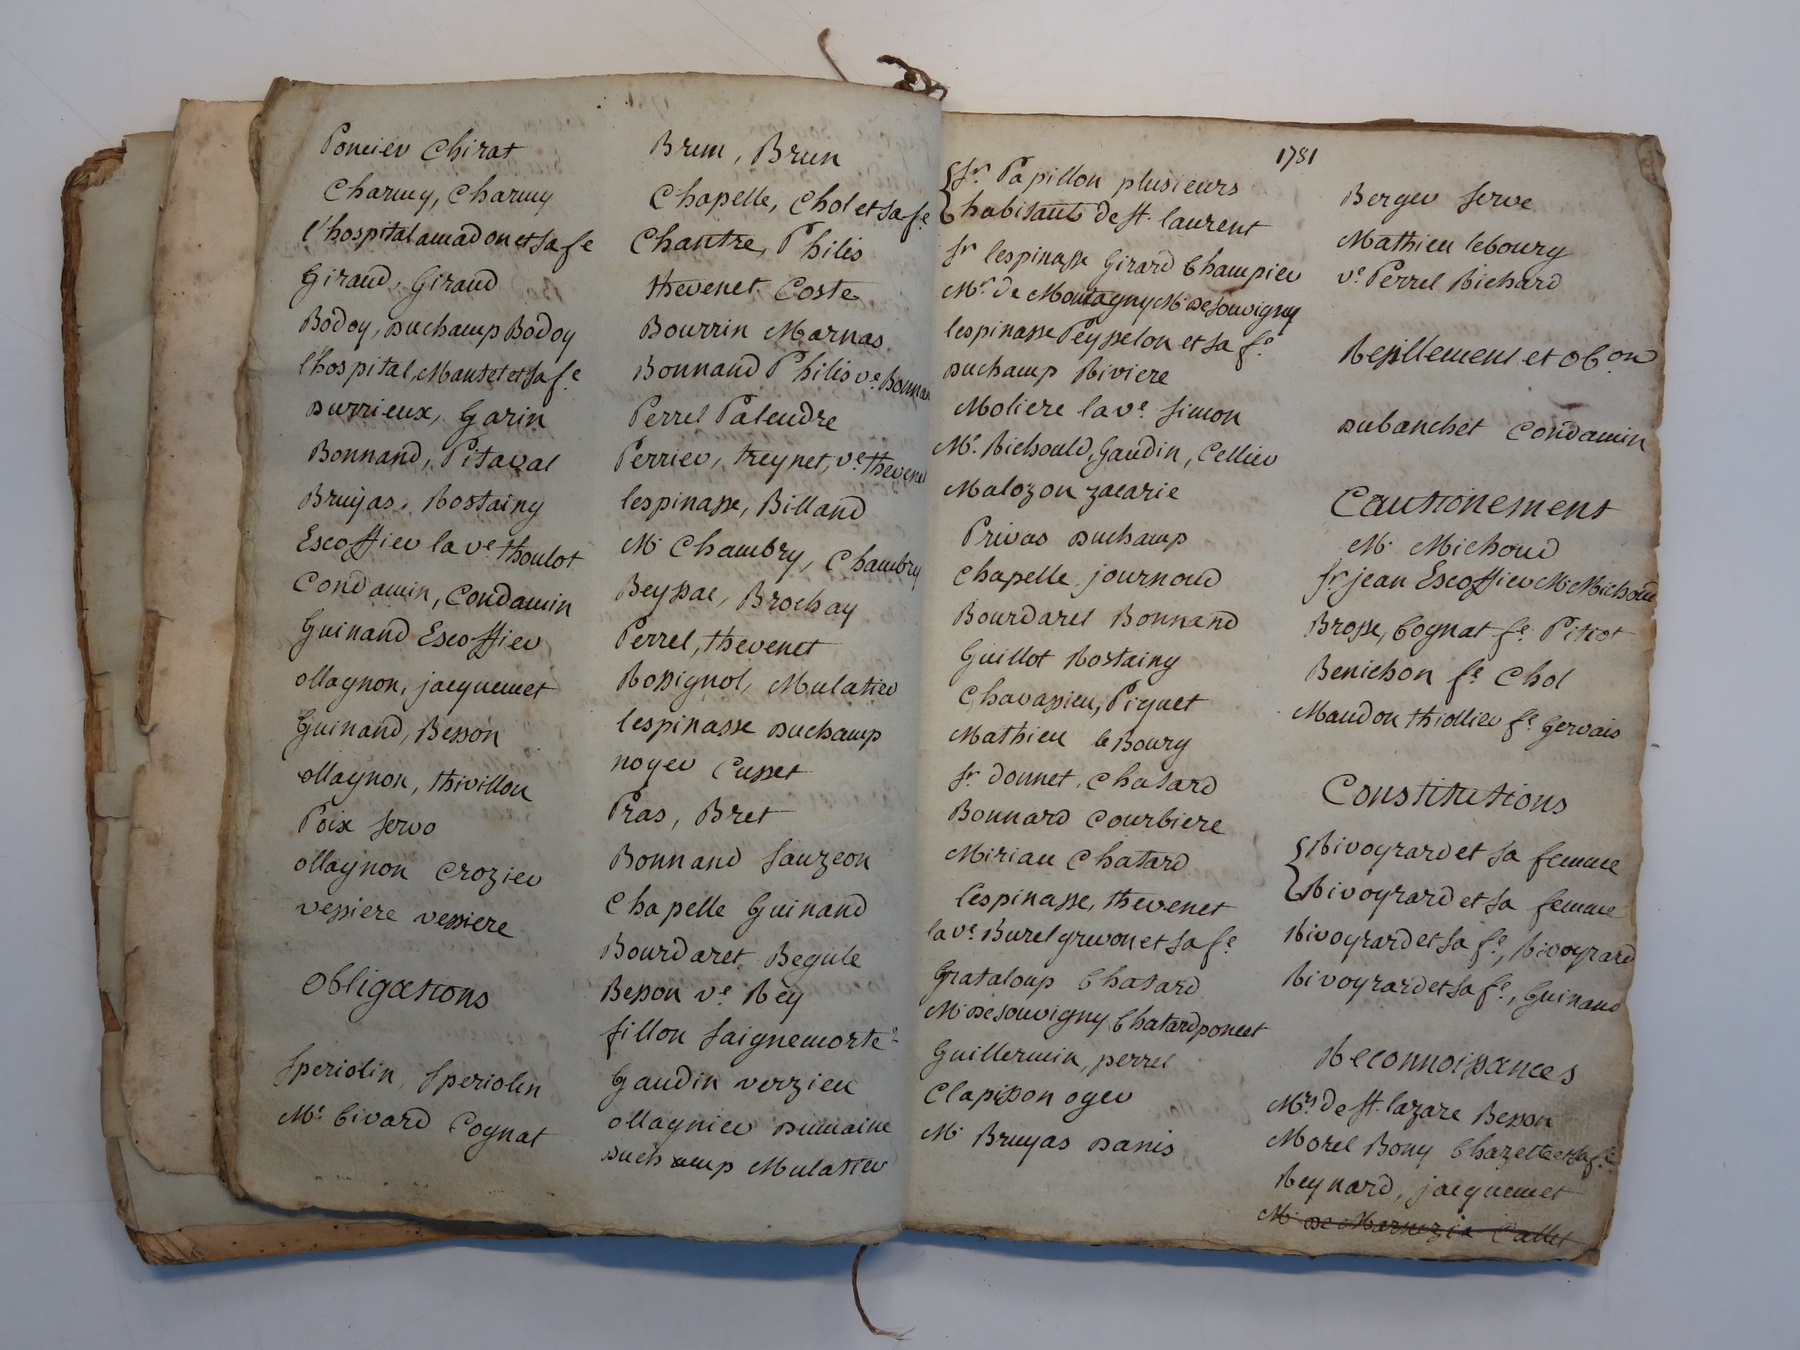 Poncier Chirat
Charmy, Charmy
l'hospital amadon et sa fe
Giraud, Giraud
Bodoy, Duchamp Bodoy
l'hospital, Mantel et sa fe
Durrieux, Garin
Bonnand, Pitaval
Bruyas, Rostaing
Escoffier la ve thoulot
Condamin, Condamin
Guinand Escoffier
ollagnon, jacquemet
Guinand, Besson
ollagnon, thivillon
Poix servo
ollagnon Crozier
vessiere vessiere
Obligations
Speriolin, Speriolin
Mr. Givard Cognat
Brun, Brun
Chapelle, Chol et sa fe
Chantre, Philis
thevenet Coste
Bourrin Marnas
Bonnand Philis ve Bonnan
Perrel Palendre
Perrier, treynet, ve thevenet
lespinasse, Billand
Mr Chambry, Chambry
Beyssac, Brochay
Perrel, thevenet
Rossignol, Mulatier
lespinasse Duchamp
noyer Cusset
Pras, Bret
Bonnand Sauzeon
Chapelle Guinand
Bourdaret Begule
Besson ve Rey
fillon Saignemorte
Gaudin verzieu
ollagnier Dumaine
Duchamp Mulatier
1781
Sr. Papillon plusieurs
habitants de st. laurent
Sr lespinasse Girard Champier
Mr. de Montagny Mr. de Souvigny
lespinasse Peysselon et sa fe
Duchamp Riviere
Moliere la ve. Simon
Mr. Richould, Gaudin, Cellier
Malozon zacarie
Privas Duchamp
Chapelle journoud
Bourdarel Bonnand
Guillot Rostaing
Chavassieu, Piquet
Mathieu le Bourg
Sr donnet, Chatard
Bonnard Courbiere
Miriau Chatard
lespinasse, thevenet
la ve. Burel grevon et sa fe
Grataloup Chatard
Mr. de Souvigny Chatard poncet
Guillermin, perrel
Clapisson oger
Mr Bruyas Danis
Berger Serve
Mathieu lebourg
ve Perrel Richard
Resillement et ob.on
Dubanchet Condamin
Cautionement
Mr Michoud
Sr jean Escoffier Mr Michoud
Brosse, Cognat fe Pitiot
Benichon fe Chol
Maudon thiollier fe Gervais
Constitutions
Rivoyrard et sa femme
Rivoyrard et sa femme
Rivoyrard et sa fe, Rivoyrard
Rivoyrard et sa fe, Guinand
Reconnoissances
Mrs de St. lazare Besson
Morel Bony Chazelle et sa fe
Reynard, jacquemet
Mr de Marnezia Callet